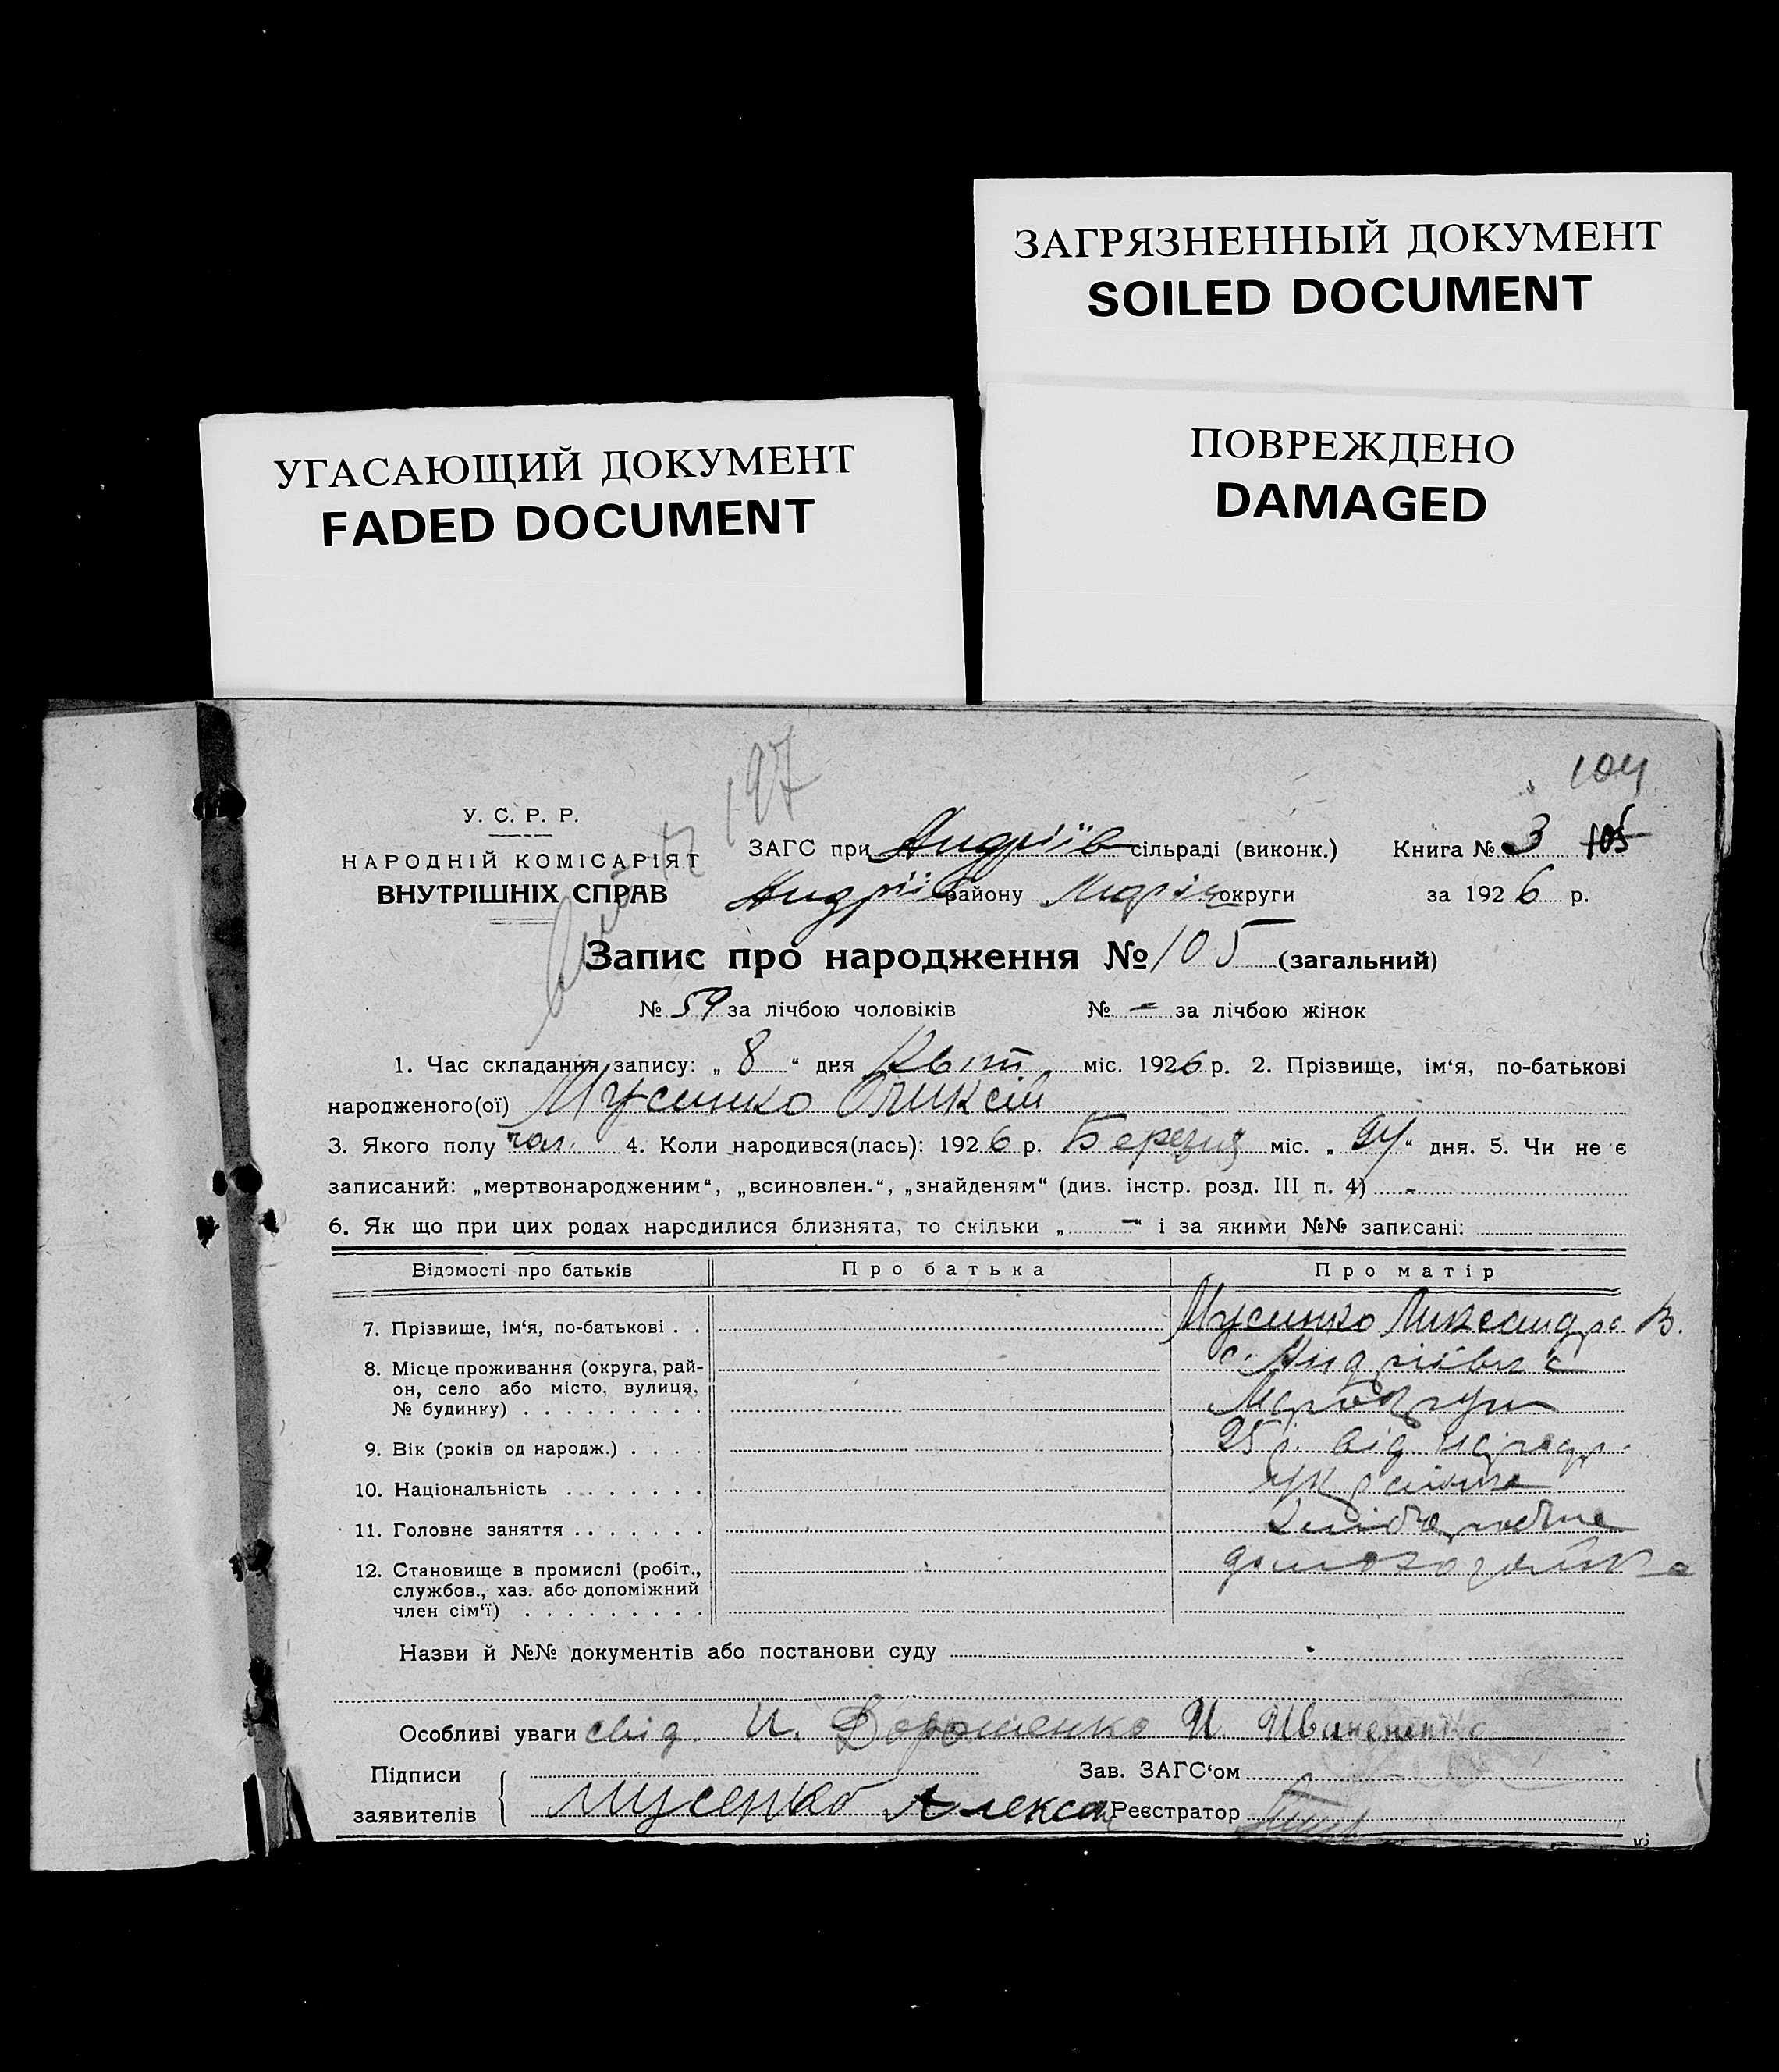 ЗАГРЯЗНЕННЫЙ ДОКУМЕНТ
SOILED DOCUMENT
УГАСАЮЩИЙ ДОКУМЕНТ
FADED DOCUMENT
ПОВРЕЖДЕНО
DAMAGED
197
104
У. С. Р. Р.
НАРОДНІЙ КОМІСАРІЯТ
ВНУТРІШНІХ СПРАВ
ЗАГС при Андріїв сільраді (виконк.) Книга № 3 105
Андріїв району Маріюп округи за 1926 р.
Запис про народження № 105 (загальний)
№ 59 за лічбою чоловіків № - за лічбою жінок
1. Час складання запису: „ 8 “ дня Квіт міс. 1926 р. 2. Прізвище, ім‘я, по-батькові
народженого(ої) Мусинко Оликсій
3. Якого полу чол. 4. Коли народився(лась): 1926 р. Березня міс. „ 24 “ дня. 5. Чи не є
записаний: „мертвонародженим“, „всиновлен.“, „знайденям“ (див. інстр. розд. III п. 4) -
6. Як що при цих родах народилися близнята, то скільки „ - “ і за якими №№ записані:
Відомості про батьків Про батька Про матір
7. Прізвище, ім‘я, по-батькові . . Мусинко Ликсандра В.
8. Місце проживання (округа, рай-
он, село або місто, вулиця,
№ будинку) . . . . . . . . .
с. Андріївка
9. Вік (років од народж.) . . . . 25 р. від народ.
10. Національність . . . . . . . українка
11. Головне заняття . . . . . . . хліборобка
12. Становище в промислі (робіт.,
службов., хаз. або допоміжний
член сім‘ї) . . . . . . . . .
домохозяйка
Назви й №№ документів або постанови суду
Особливі уваги свід. И. Дорошенко И. Ивиненко
Підписи
заявителів
Зав. ЗАГС‘ом
Мусенко Алексан Реєстратор